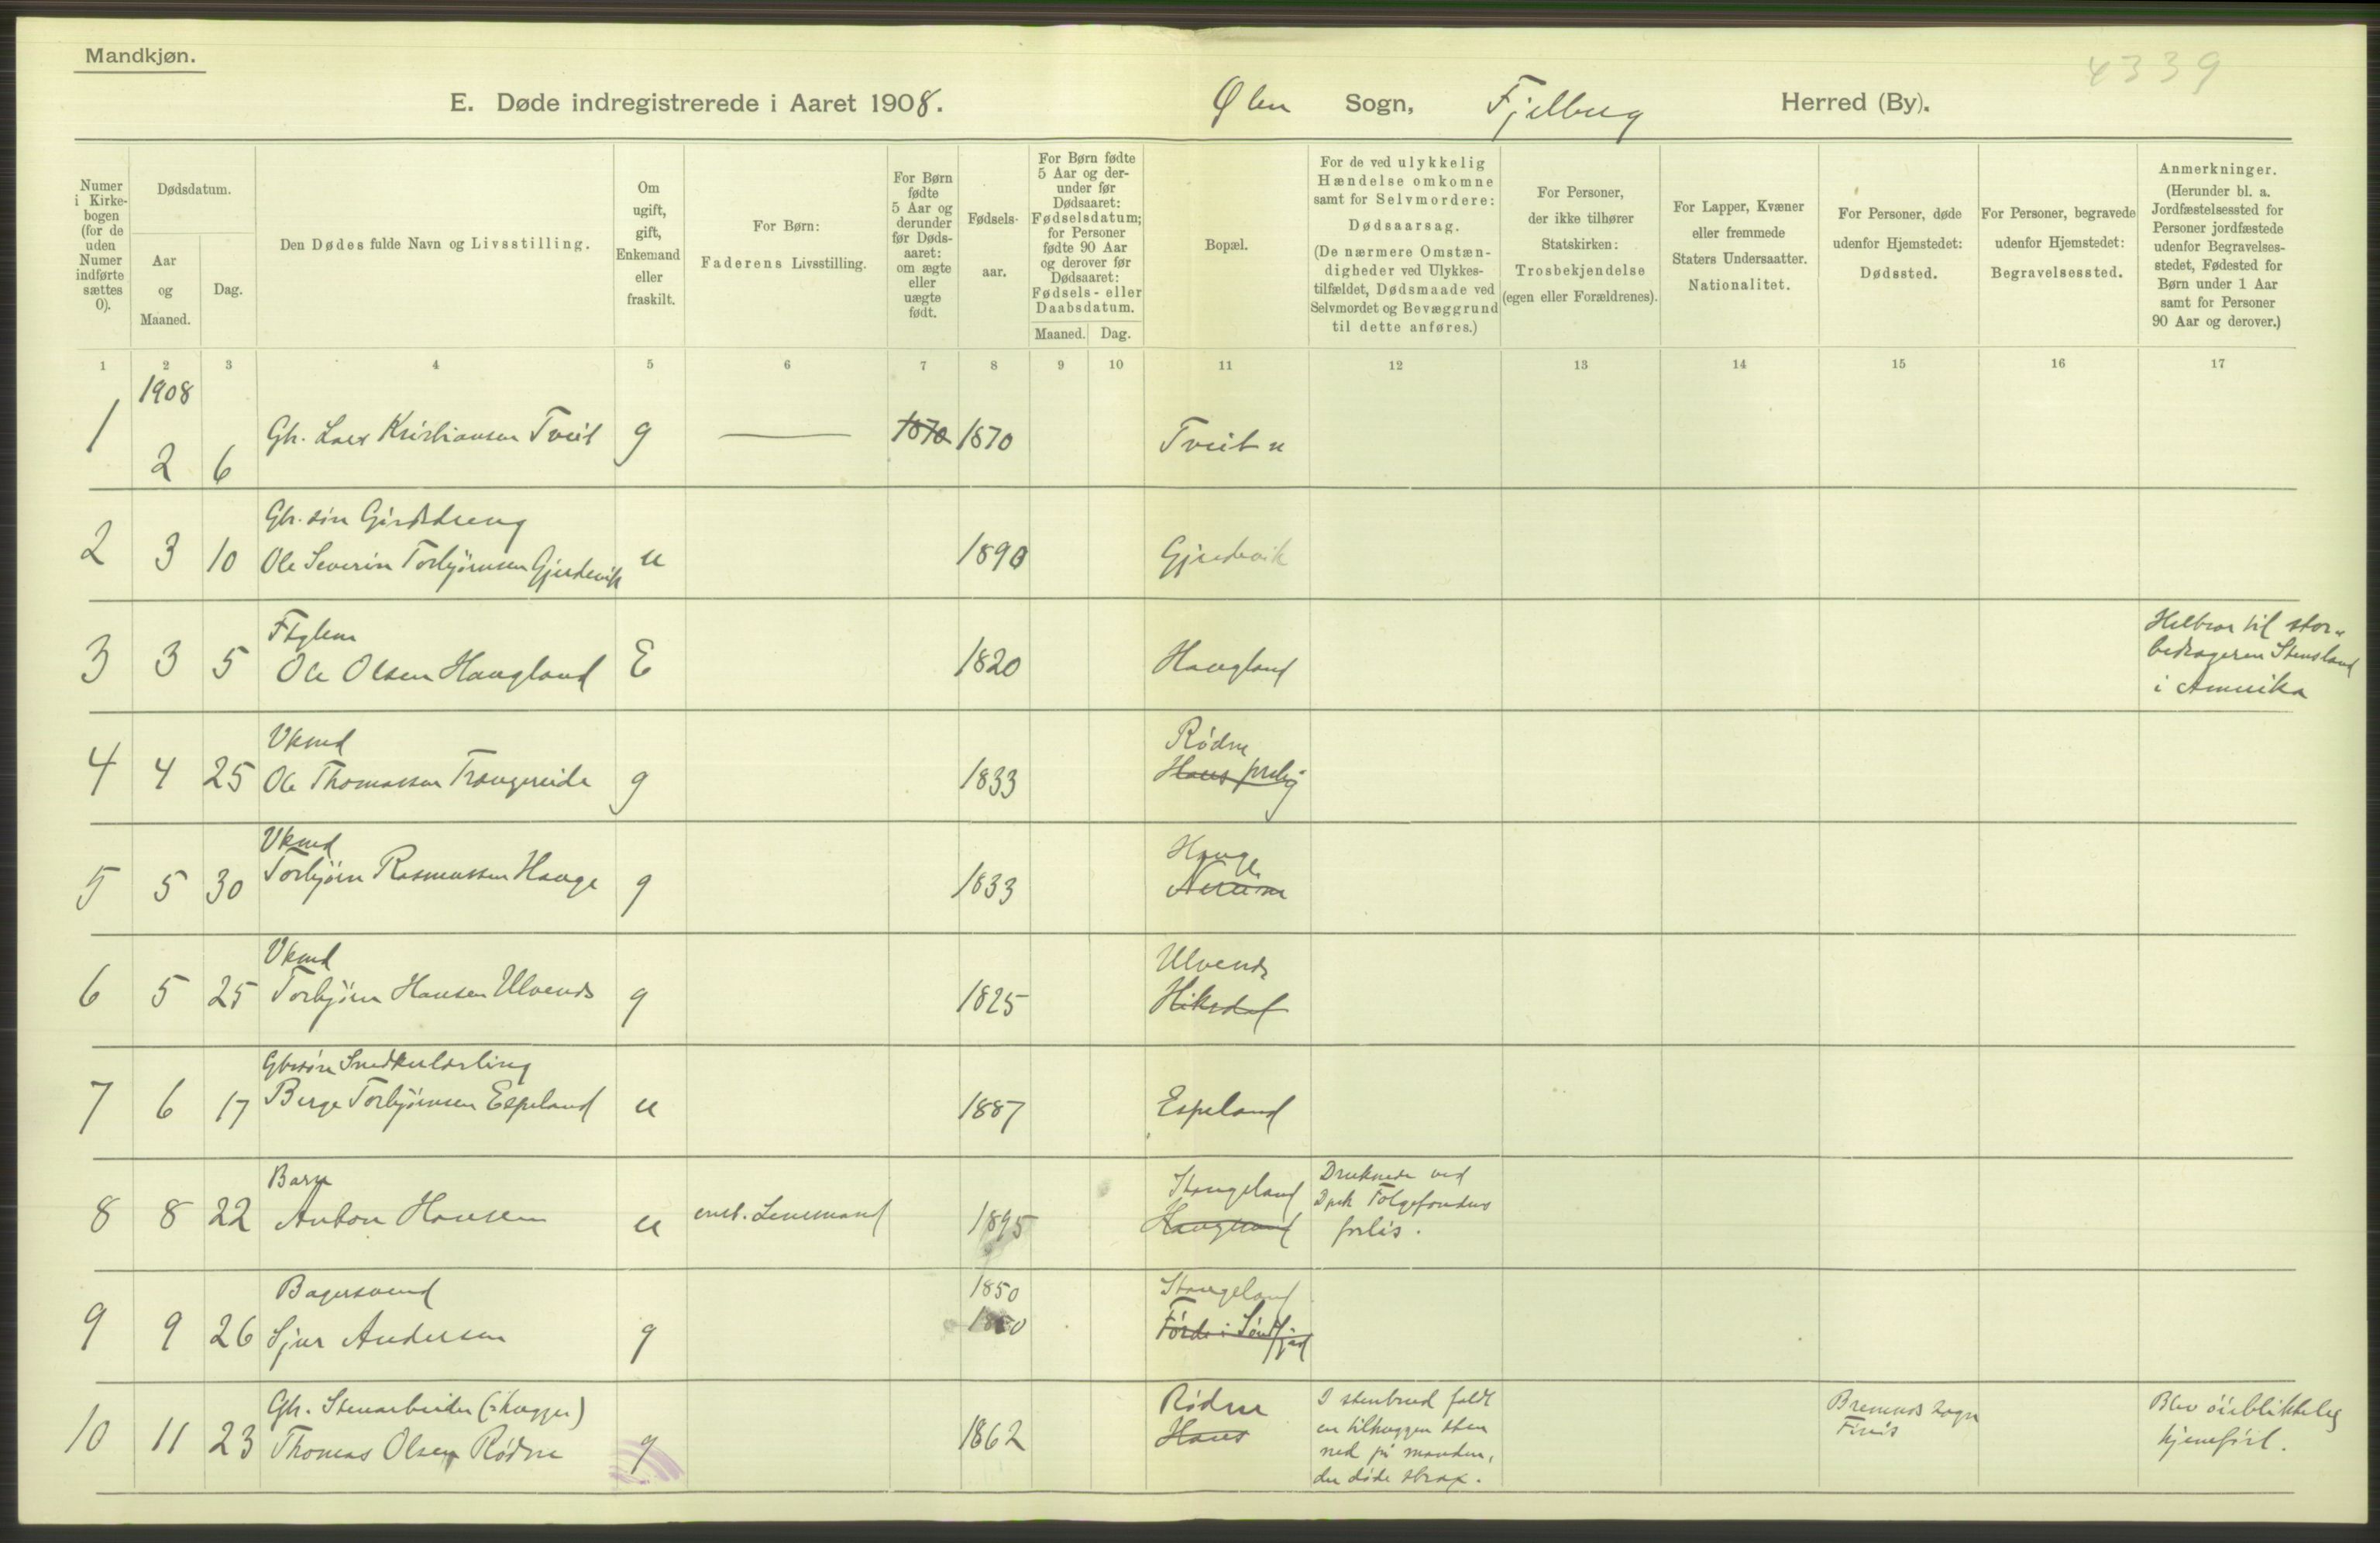 Mandkjøn.
4339
E. Døde indregistrerede i Aaret 1908. Ølen Sogn, Fjelberg Herred (By).
Numer i Kirkebogen (for de uden Numer indførte sættes 0).
Dødsdatum.
Aar og Maaned.
Dag.
Den Dødes fulde Navn og Livsstilling.
Om ugift, gift, Enkemand eller fraskilt.
For Børn: Faderens Livsstilling.
For Børn fødte 5 Aar og derunder før Dødsaaret: om ægte eller uægte født.
Fødselsaar.
For Børn fødte 5 Aar og derunder før Dødsaaret: Fødselsdatum; for Personer fødte 90 Aar og derover før Dødsaaret: Fødsels- eller Daabsdatum.
Maaned. Dag.
Bopæl.
For de ved ulykkelig Hændelse omkomne samt for Selvmordere: Dødsaarsag. (De nærmere Omstændigheder ved Ulykkestilfældet, Dødsmaade ved Selvmordet og Bevæggrund til dette anføres.)
For Personer, der ikke tilhører Statskirken: Trosbekjendelse (egen eller Forældrenes).
For Lapper, Kvæner eller fremmede Staters Undersaatter. Nationalitet.
For Personer, døde udenfor Hjemstedet: Dødssted.
For Personer, begravede udenfor Hjemstedet: Begravelsessted.
Anmerkninger. (Herunder bl. a. Jordfæstelsessted for Personer jordfæstede udenfor Begravelsesstedet, Fødested for Børn under 1 Aar samt for Personer 90 Aar og derover.)
1 2 3 4 5 6 7 8 9 10 11 12 13 14 15 16 17
1908
1 2 6 Gb. Lars Kristiansen Tveit g 1870 1870 Tveit u
Gb. søn Gårdsdreng
2 3 10 Ole Severin Torbjørnsen Gjerdevik u 1890 Gjerdevik
Helbror til stor-
bedrageren Stensland
i Amerika
3 3 5 Ole Olsen Haugland E 1820 Haugland
Vkmd Rødne
4 4 25 Ole Thomassen Trangereide g 1833
Vkmd Hauge
5 5 30 Torbjørn Rasmussen Hauge g 1833
Vkmd Ulvends
6 5 25 Torbjørn Hansen Ulvends g 1825 Hiksdal
Gbrsøn Snedkerlærling
7 6 17 Berge Torbjørnsen Espeland u 1887 Espeland
Barn Stangeland Druknede ved
Dpsk Folgefondens
forlis.
8 8 22 Anton Hansen u const. Lensmand 1895
Bagersvend 1850 Stangeland
9 9 26 Sjur Andersen g 1850 Førde i Søndfjord
Gb. Stenarbeider (:hugger) Rødne
10 11 23 Thomas Olsen Rødne g 1862 Haus
I stenbrud faldt
en tilhuggen sten
ned på manden,
der døde strax.
Bremnes sogn
Finås
Blev øieblikkelig
hjemført.